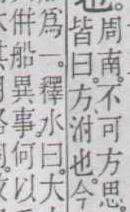 也。周南。不可方思
皆曰。方泭也。今
爲一。釋水曰。大
併船異事。何以